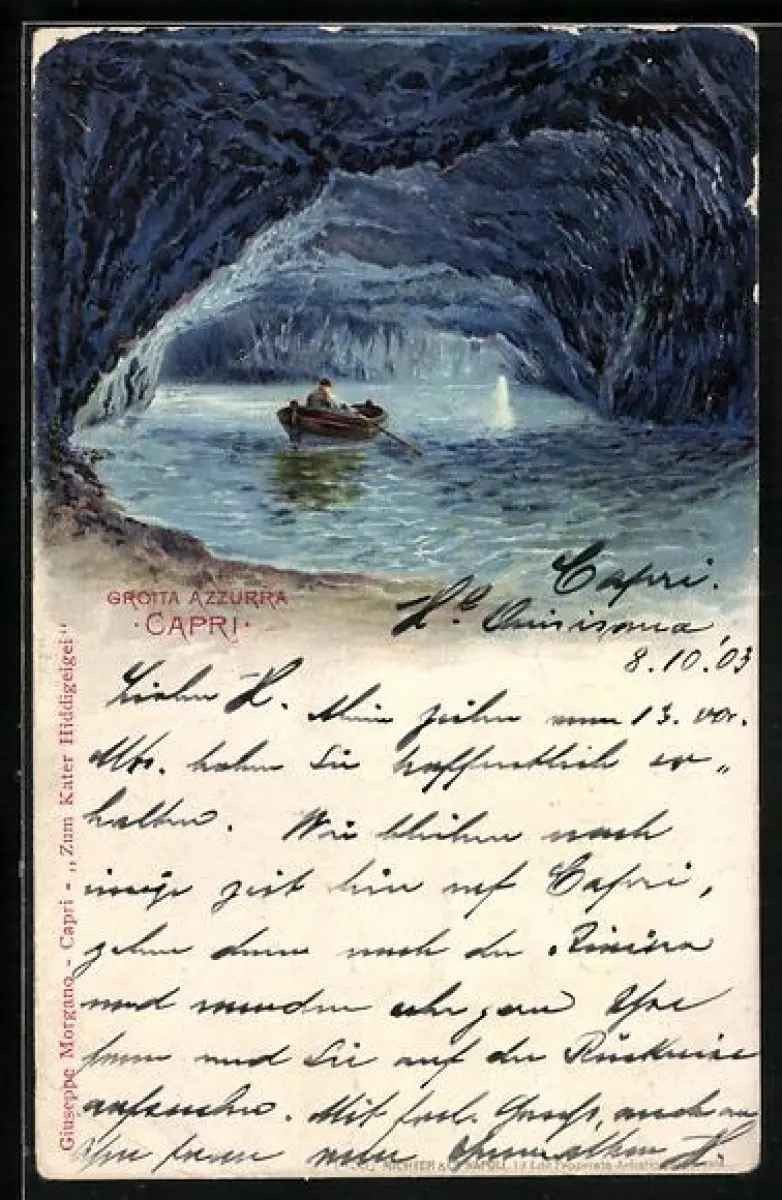 GROTTA AZZURRA
·CAPRI·
Capri.
H.ᵗˡ Quisisana
8.10.'03
Lieber H. Mein zeilen vom 13. vor.
Mts. haben Sie hoffentlich er-
halten. Wir bleiben noch
einige Zeit hier auf Capri,
gehen dann nach der Riviera
und werden sehr gern Ihre
Frau und Sie auf der Rückreise
aufsuchen. Mit frdl. Gruß, auch an
Ihre Frau von H.
Giuseppe Morgano - Capri - „Zum Kater Hiddigeigei"
RICHTER & C. NAPOLI